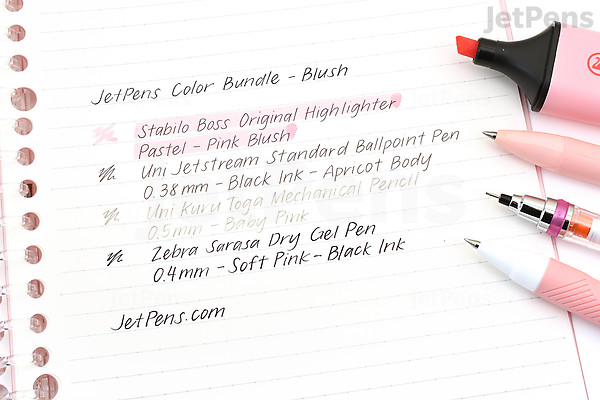 JetPens
JetPens Color Bundle - Blush
Stabilo Boss Original Highlighter
Pastel - Pink Blush
Uni Jetstream Standard Ballpoint Pen
0.38mm - Black Ink - Apricot Body
Uni Kuru Toga Mechanical Pencil
0.5mm - Baby Pink
Zebra Sarasa Dry Gel Pen
0.4mm - Soft Pink - Black Ink
JetPens.com